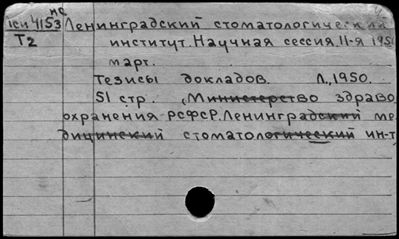 нс
1си4153 Ленинградский стоматологический
Т2 институт. Научная сессия. II-я 195
март.
Тезисы докладов. Л., 1950.
51 стр. (Министерство здраво
охранения РСФСР. Ленинградский ме
дицинский стоматологический ин-т